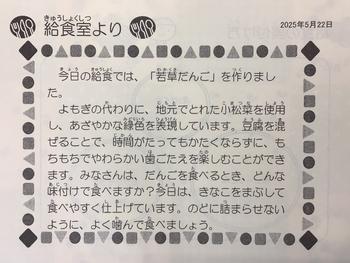 きゅうしょくしつ
給食室より
2025年5月22日
今日の給食では、「若草だんご」を作りまし
た。
よもぎの代わりに、地元でとれた小松菜を使用
し、あざやかな緑色を表現しています。豆腐を混
ぜることで、時間がたってもかたくならずに、も
ちもちでやわらかい歯ごたえを楽しむことができ
ます。みなさんは、だんごを食べるとき、どんな
味付けで食べますか?今日は、きなこをまぶして
食べやすく仕上げています。のどに詰まらせない
ように、よく噛んで食べましょう。